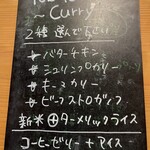 ~ Curry
2種 選んで下さい
バターチキン
シュリンプカリー
キーマカリー
ビーフストロガノフ
新米 ターメリックライス
コーヒーゼリー + アイス